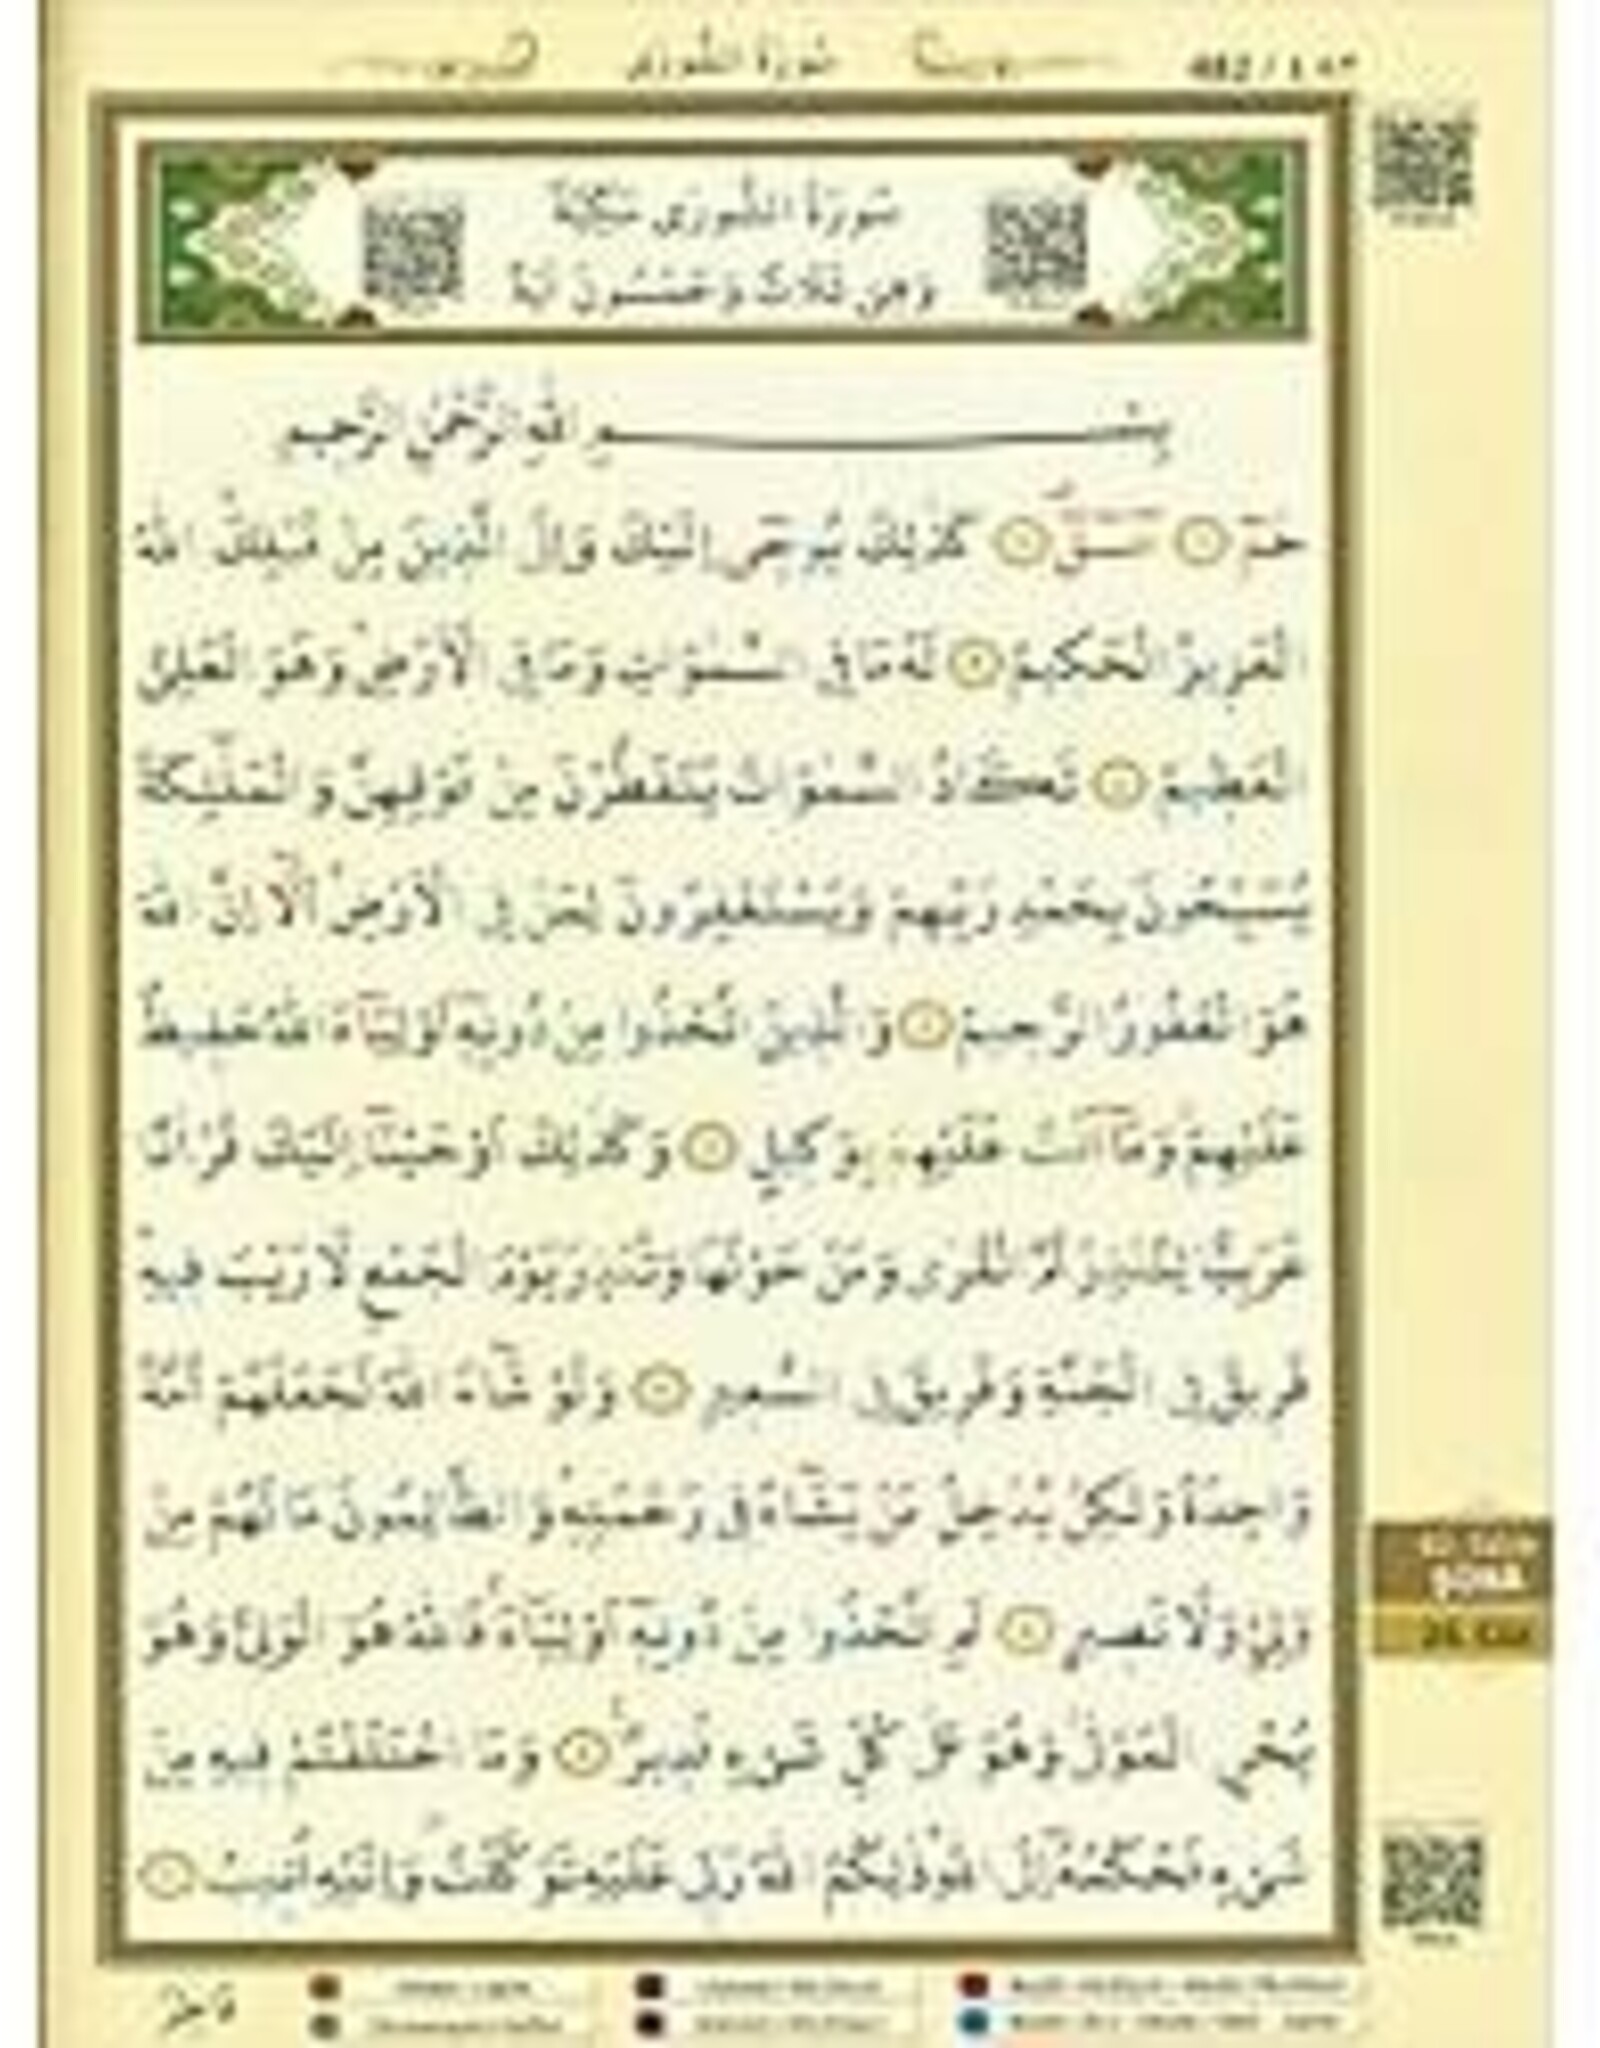 سُورَةُ الشُّورٰى
سُورَةُ الشُّورٰى مَكِّيَّةٌ
وَهِىَ ثَلَاثٌ وَخَمْسُونَ اٰيَةً
بِسْمِ اللّٰهِ الرَّحْمٰنِ الرَّحِيمِ
حٰمٓ ۝ عٓسٓقٓ ۝ كَذٰلِكَ يُوحٖٓى اِلَيْكَ وَاِلَى الَّذٖينَ مِنْ قَبْلِكَ اللّٰهُ
الْعَزٖيزُ الْحَكٖيمُ ۝ لَهُ مَا فِى السَّمٰوَاتِ وَمَا فِى الْاَرْضِ وَهُوَ الْعَلِىُّ
الْعَظٖيمُ ۝ تَكَادُ السَّمٰوَاتُ يَتَفَطَّرْنَ مِنْ فَوْقِهِنَّ وَالْمَلٰٓئِكَةُ
يُسَبِّحُونَ بِحَمْدِ رَبِّهِمْ وَيَسْتَغْفِرُونَ لِمَنْ فِى الْاَرْضِ اَلَٓا اِنَّ اللّٰهَ
هُوَ الْغَفُورُ الرَّحٖيمُ ۝ وَالَّذٖينَ اتَّخَذُوا مِنْ دُونِهٖٓ اَوْلِيَٓاءَ اللّٰهُ حَفٖيظٌ
عَلَيْهِمْ وَمَٓا اَنْتَ عَلَيْهِمْ بِوَكٖيلٍ ۝ وَكَذٰلِكَ اَوْحَيْنَٓا اِلَيْكَ قُرْاٰنًا
عَرَبِيًّا لِتُنْذِرَ اُمَّ الْقُرٰى وَمَنْ حَوْلَهَا وَتُنْذِرَ يَوْمَ الْجَمْعِ لَا رَيْبَ فٖيهِ
فَرٖيقٌ فِى الْجَنَّةِ وَفَرٖيقٌ فِى السَّعٖيرِ ۝ وَلَوْ شَٓاءَ اللّٰهُ لَجَعَلَهُمْ اُمَّةً
وَاحِدَةً وَلٰكِنْ يُدْخِلُ مَنْ يَشَٓاءُ فٖى رَحْمَتِهٖ وَالظَّالِمُونَ مَا لَهُمْ مِنْ
وَلِىٍّ وَلَا نَصٖيرٍ ۝ اَمِ اتَّخَذُوا مِنْ دُونِهٖٓ اَوْلِيَٓاءَ فَاللّٰهُ هُوَ الْوَلِىُّ وَهُوَ
يُحْيِى الْمَوْتٰى وَهُوَ عَلٰى كُلِّ شَىْءٍ قَدٖيرٌ ۝ وَمَا اخْتَلَفْتُمْ فٖيهِ مِنْ
شَىْءٍ فَحُكْمُهُٓ اِلَى اللّٰهِ ذٰلِكُمُ اللّٰهُ رَبّٖى عَلَيْهِ تَوَكَّلْتُ وَاِلَيْهِ اُنٖيبُ ۝